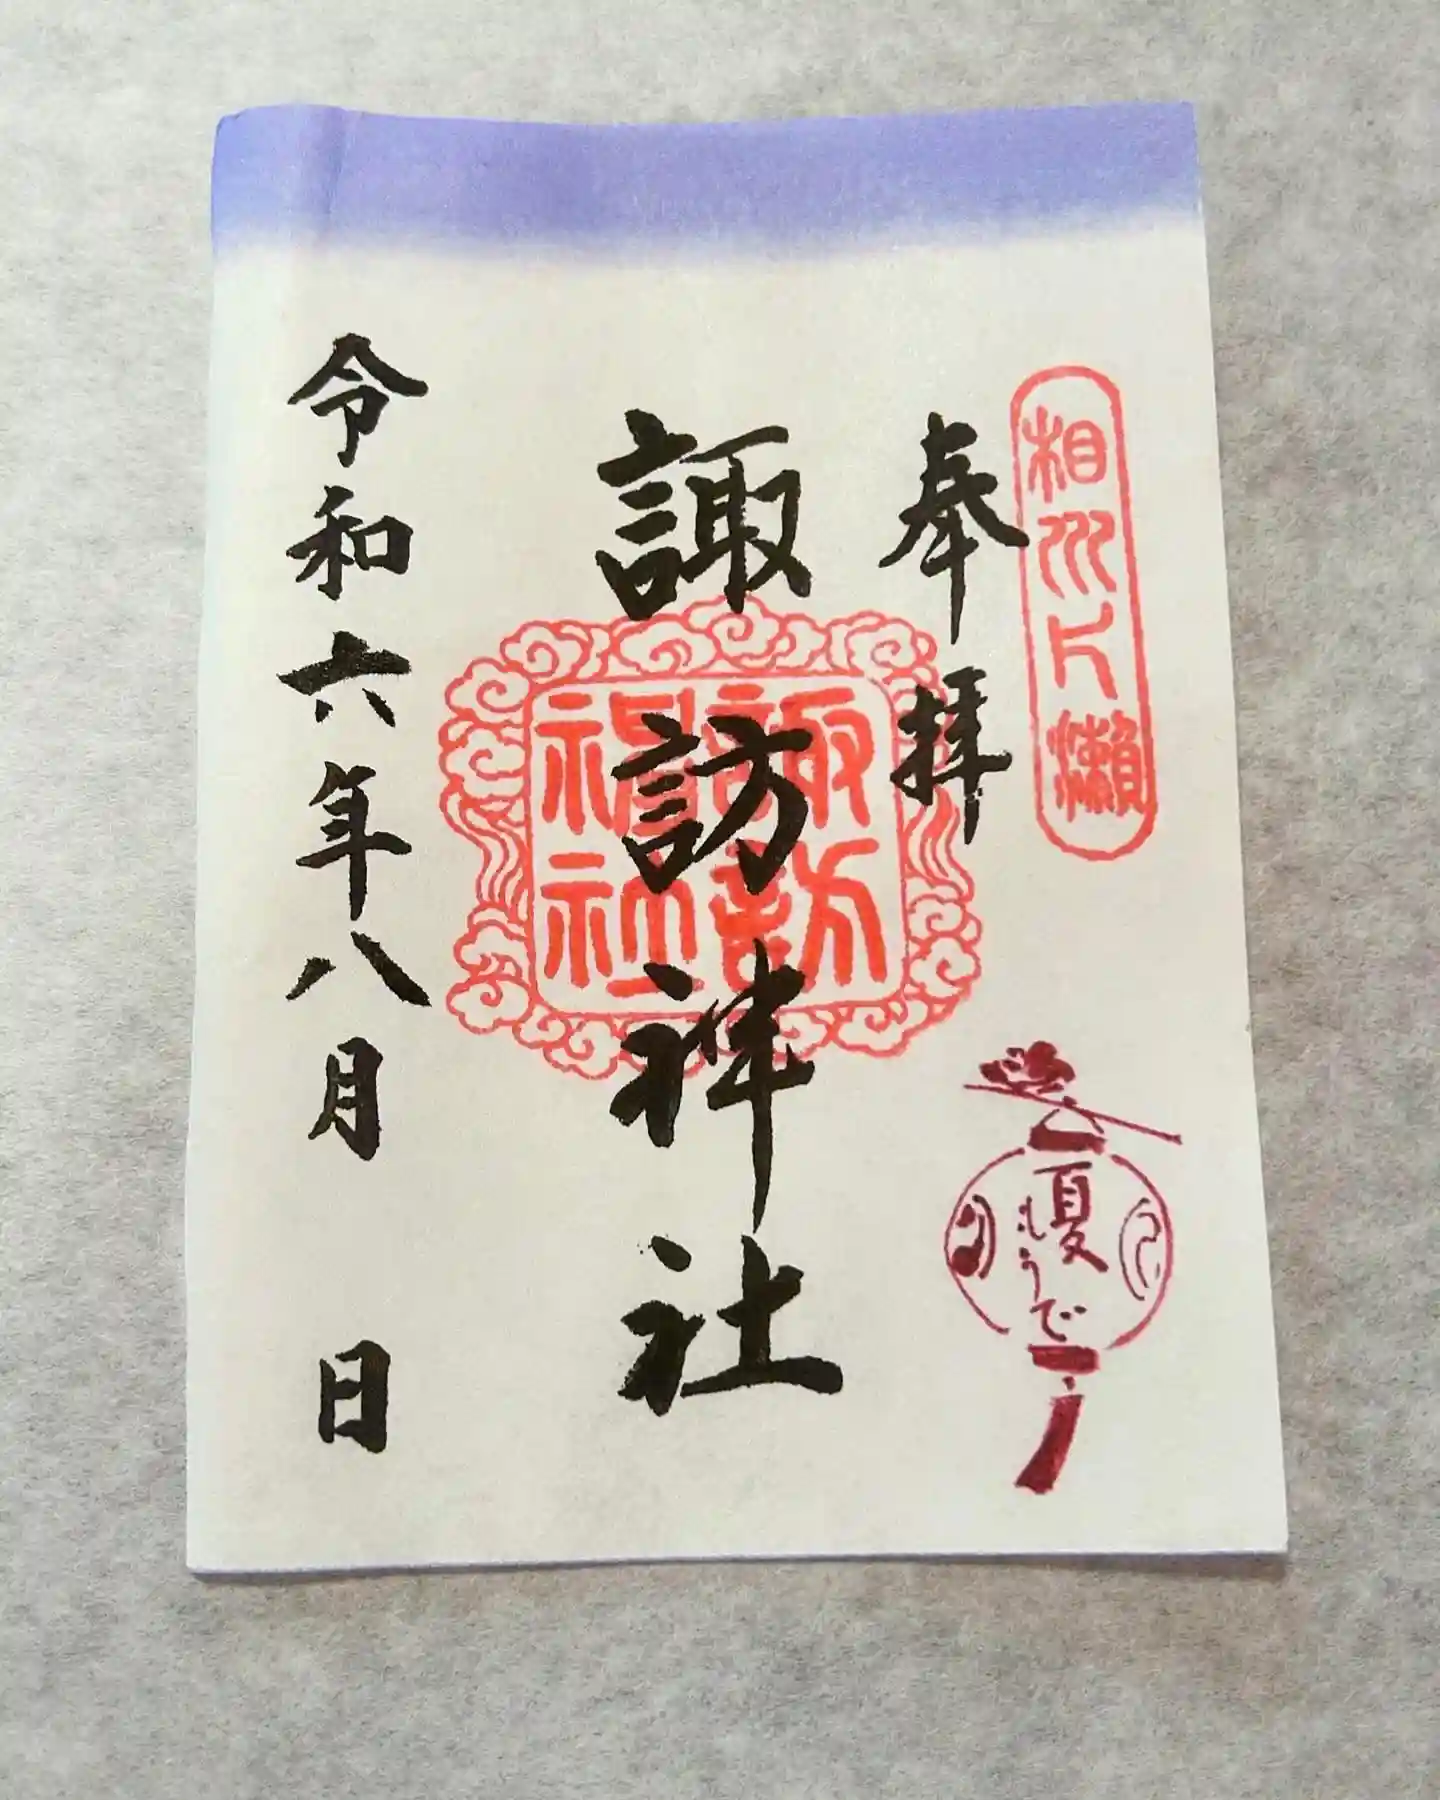 相州片瀬
奉拝
諏訪神社
諏訪
神社
夏
もうで
令和六年八月 日